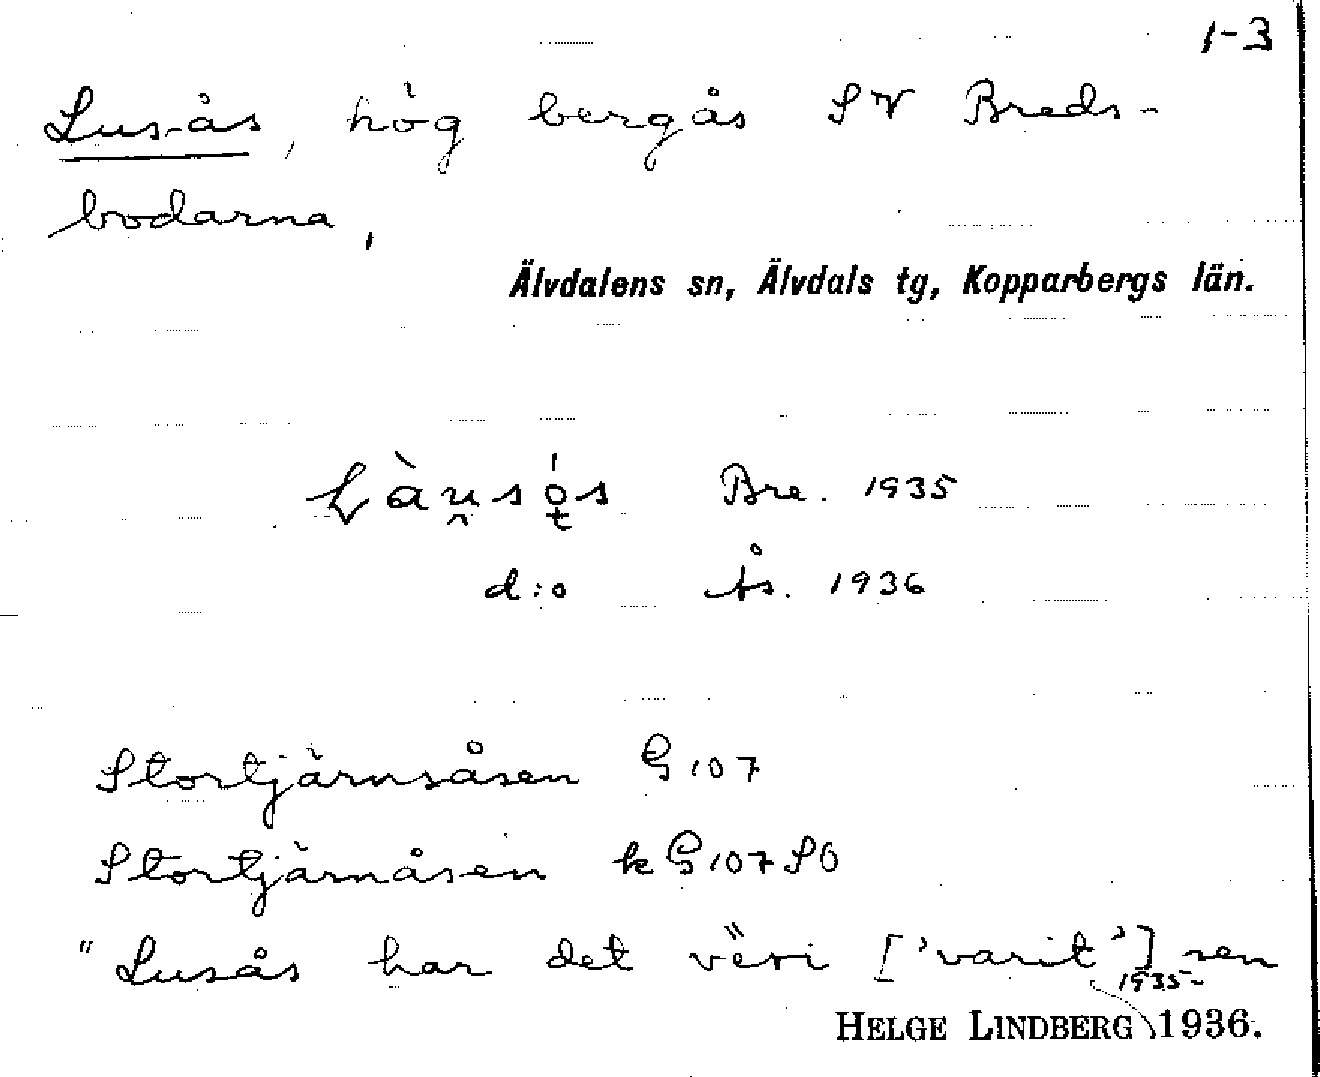 1-3
Lus-ås, hög bergås SV Breds-
bodarna,
Älvdalens sn, Älvdals tg, Kopparbergs län.
Bre. 1935
d:o Ås. 1936
Stortjärnsåsen G 107
Stortjärnåsen k G 107 SO
"Lusås har det vëri ['varit'] sen
1935-
HELGE LINDBERG 1936.